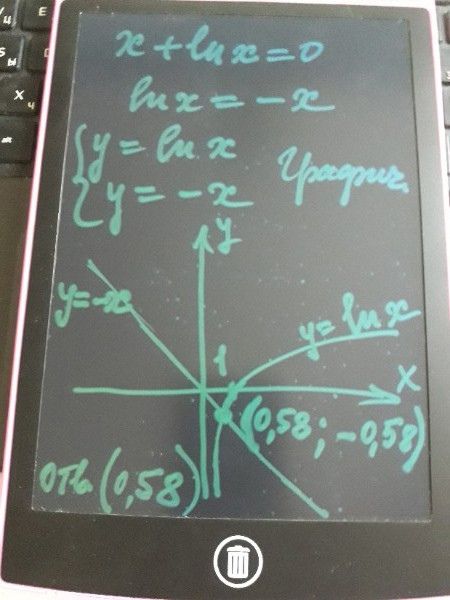 x + ln x = 0
ln x = -x
{ y = ln x
{ y = -x
Графич.
y
y = -x
y = ln x
1
x
(0,58; -0,58)
Отв. (0,58)